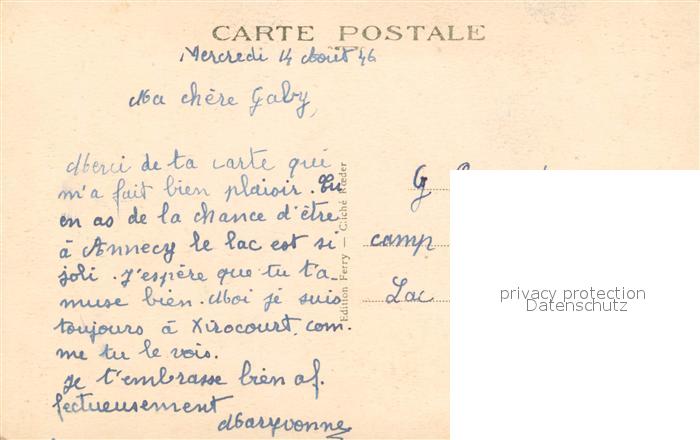 CARTE POSTALE
Mercredi 14 Août 46
Ma chère Gaby,
Merci de ta carte qui
m'a fait bien plaisir. Tu
en as de la chance d'être
à Annecy le lac est si
joli. J'espère que tu t'a-
muse bien. Moi je suis
toujours à Xirocourt, com-
me tu le vois.
Je t'embrasse bien af.
fectueusement
Maryvonne
Edition Ferry — Cliché Rœder
G
camp
Lac
privacy protection
Datenschutz